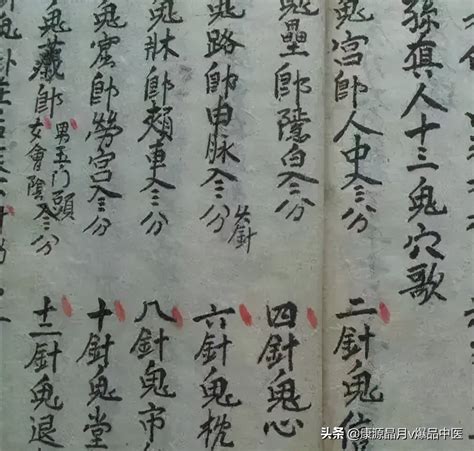 孫真人十三鬼穴歌
鬼宮卽人中入三分
二針鬼信
鬼壘卽隱白入三分
四針鬼心
鬼路卽申脉入三分 火針
六針鬼枕
鬼牀卽頰車入三分
八針鬼市
鬼窟卽勞宮入三分
十針鬼堂
鬼藏卽男玉门頭
女會陰入三分
十二針鬼退
头条 @康源晶月v爆品中医